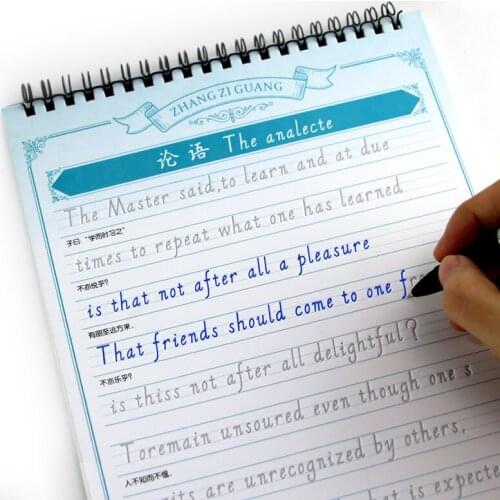 ZHANG ZI GUANG
论语 The analecte
The Master said,to learn and at due
子曰:"学而时习之"
times to repeat what one has learned
不亦悦乎?
is that not after all a pleasure
有朋至远方来.
That friends should come to one f
不亦乐乎?
is thiss not after all delightful?
Toremain unsoured even though one s
人不知而不愠,
its are unrecognized by others,
that is expecte